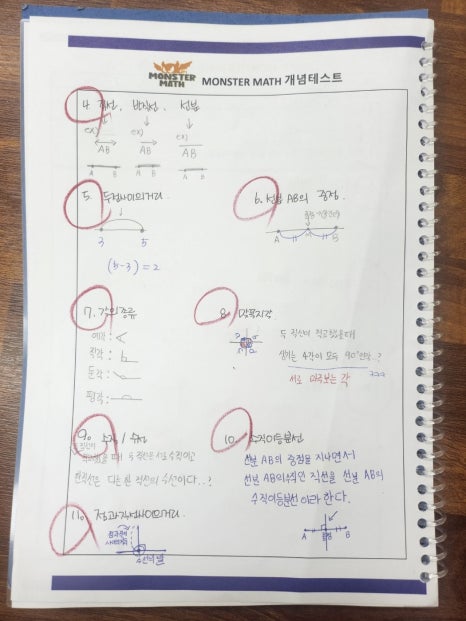 MONSTER MATH
MONSTER MATH 개념테스트
4. 직선, 반직선, 선분
ex) ex) ex)
AB AB AB
A B A B A B
5. 두점사이의거리.
3 5
(5-3)=2
6. 선분 AB의 중점.
A M B
7. 각의종류
예각:
직각:
둔각:
평각:
8. 맞꼭지각
두 직선이
생기는 4각이 모두 90°인각..?
서로 마주보는 각
9. 수직 / 수선
두 직선은 서로 수직이고
다른 한 직선의 수선이다..?
10. 수직이등분선
선분 AB의 중점을 지나면서
선분 AB에 수직인 직선을 선분 AB의
수직이등분선 이라 한다.
A B
11. 점과직선사이의거리.
수선의 발